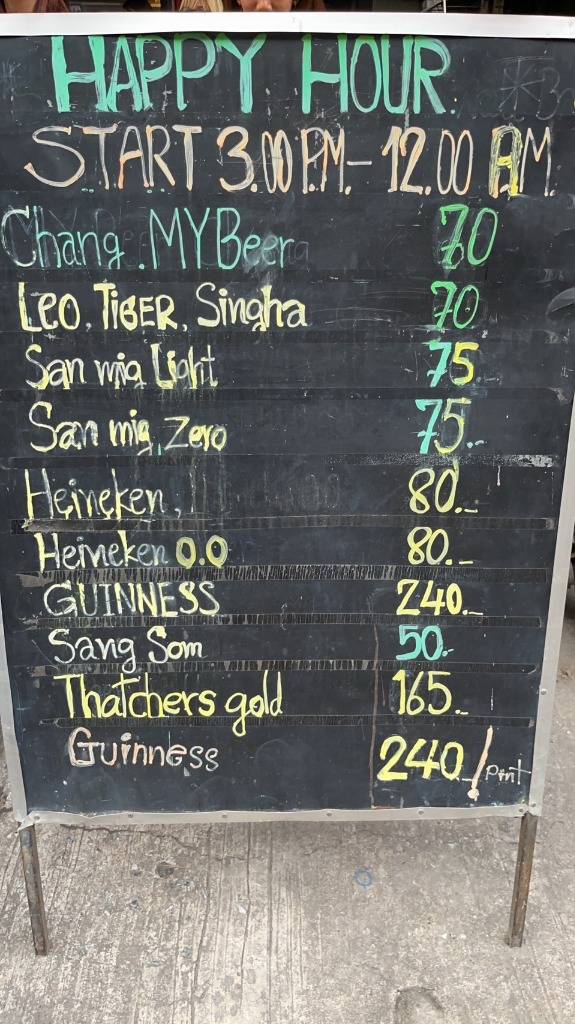 HAPPY HOUR
START 3.00 P.M. - 12.00 A.M.
Chang. MY Beer 70
Leo, TIGER, Singha 70
San mig Light 75.-
San mig Zero 75.-
Heineken, 80.-
Heineken 0.0 80.-
GUINNESS 240.-
Sang Som 50.-
Thatchers gold 165.-
Guinness 240./Pint